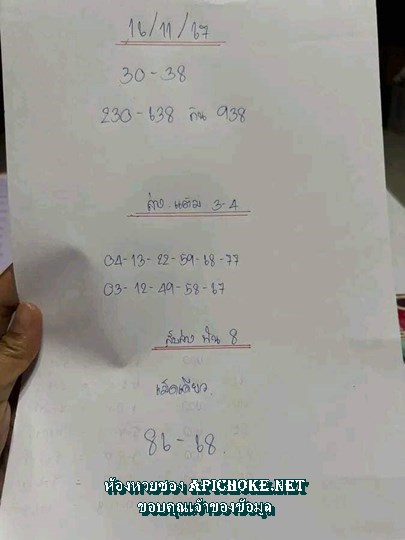 16/11/67
30-38
230-638 กัน 938
ล่าง แต้ม 3-4
04-13-22-59-68-77
03-12-49-58-67
สิบล่าง ฟัน 8
เม็ดเดียว.
86-68.
ห้องหวยซอง APICHOKE.NET
ขอบคุณเจ้าของข้อมูล